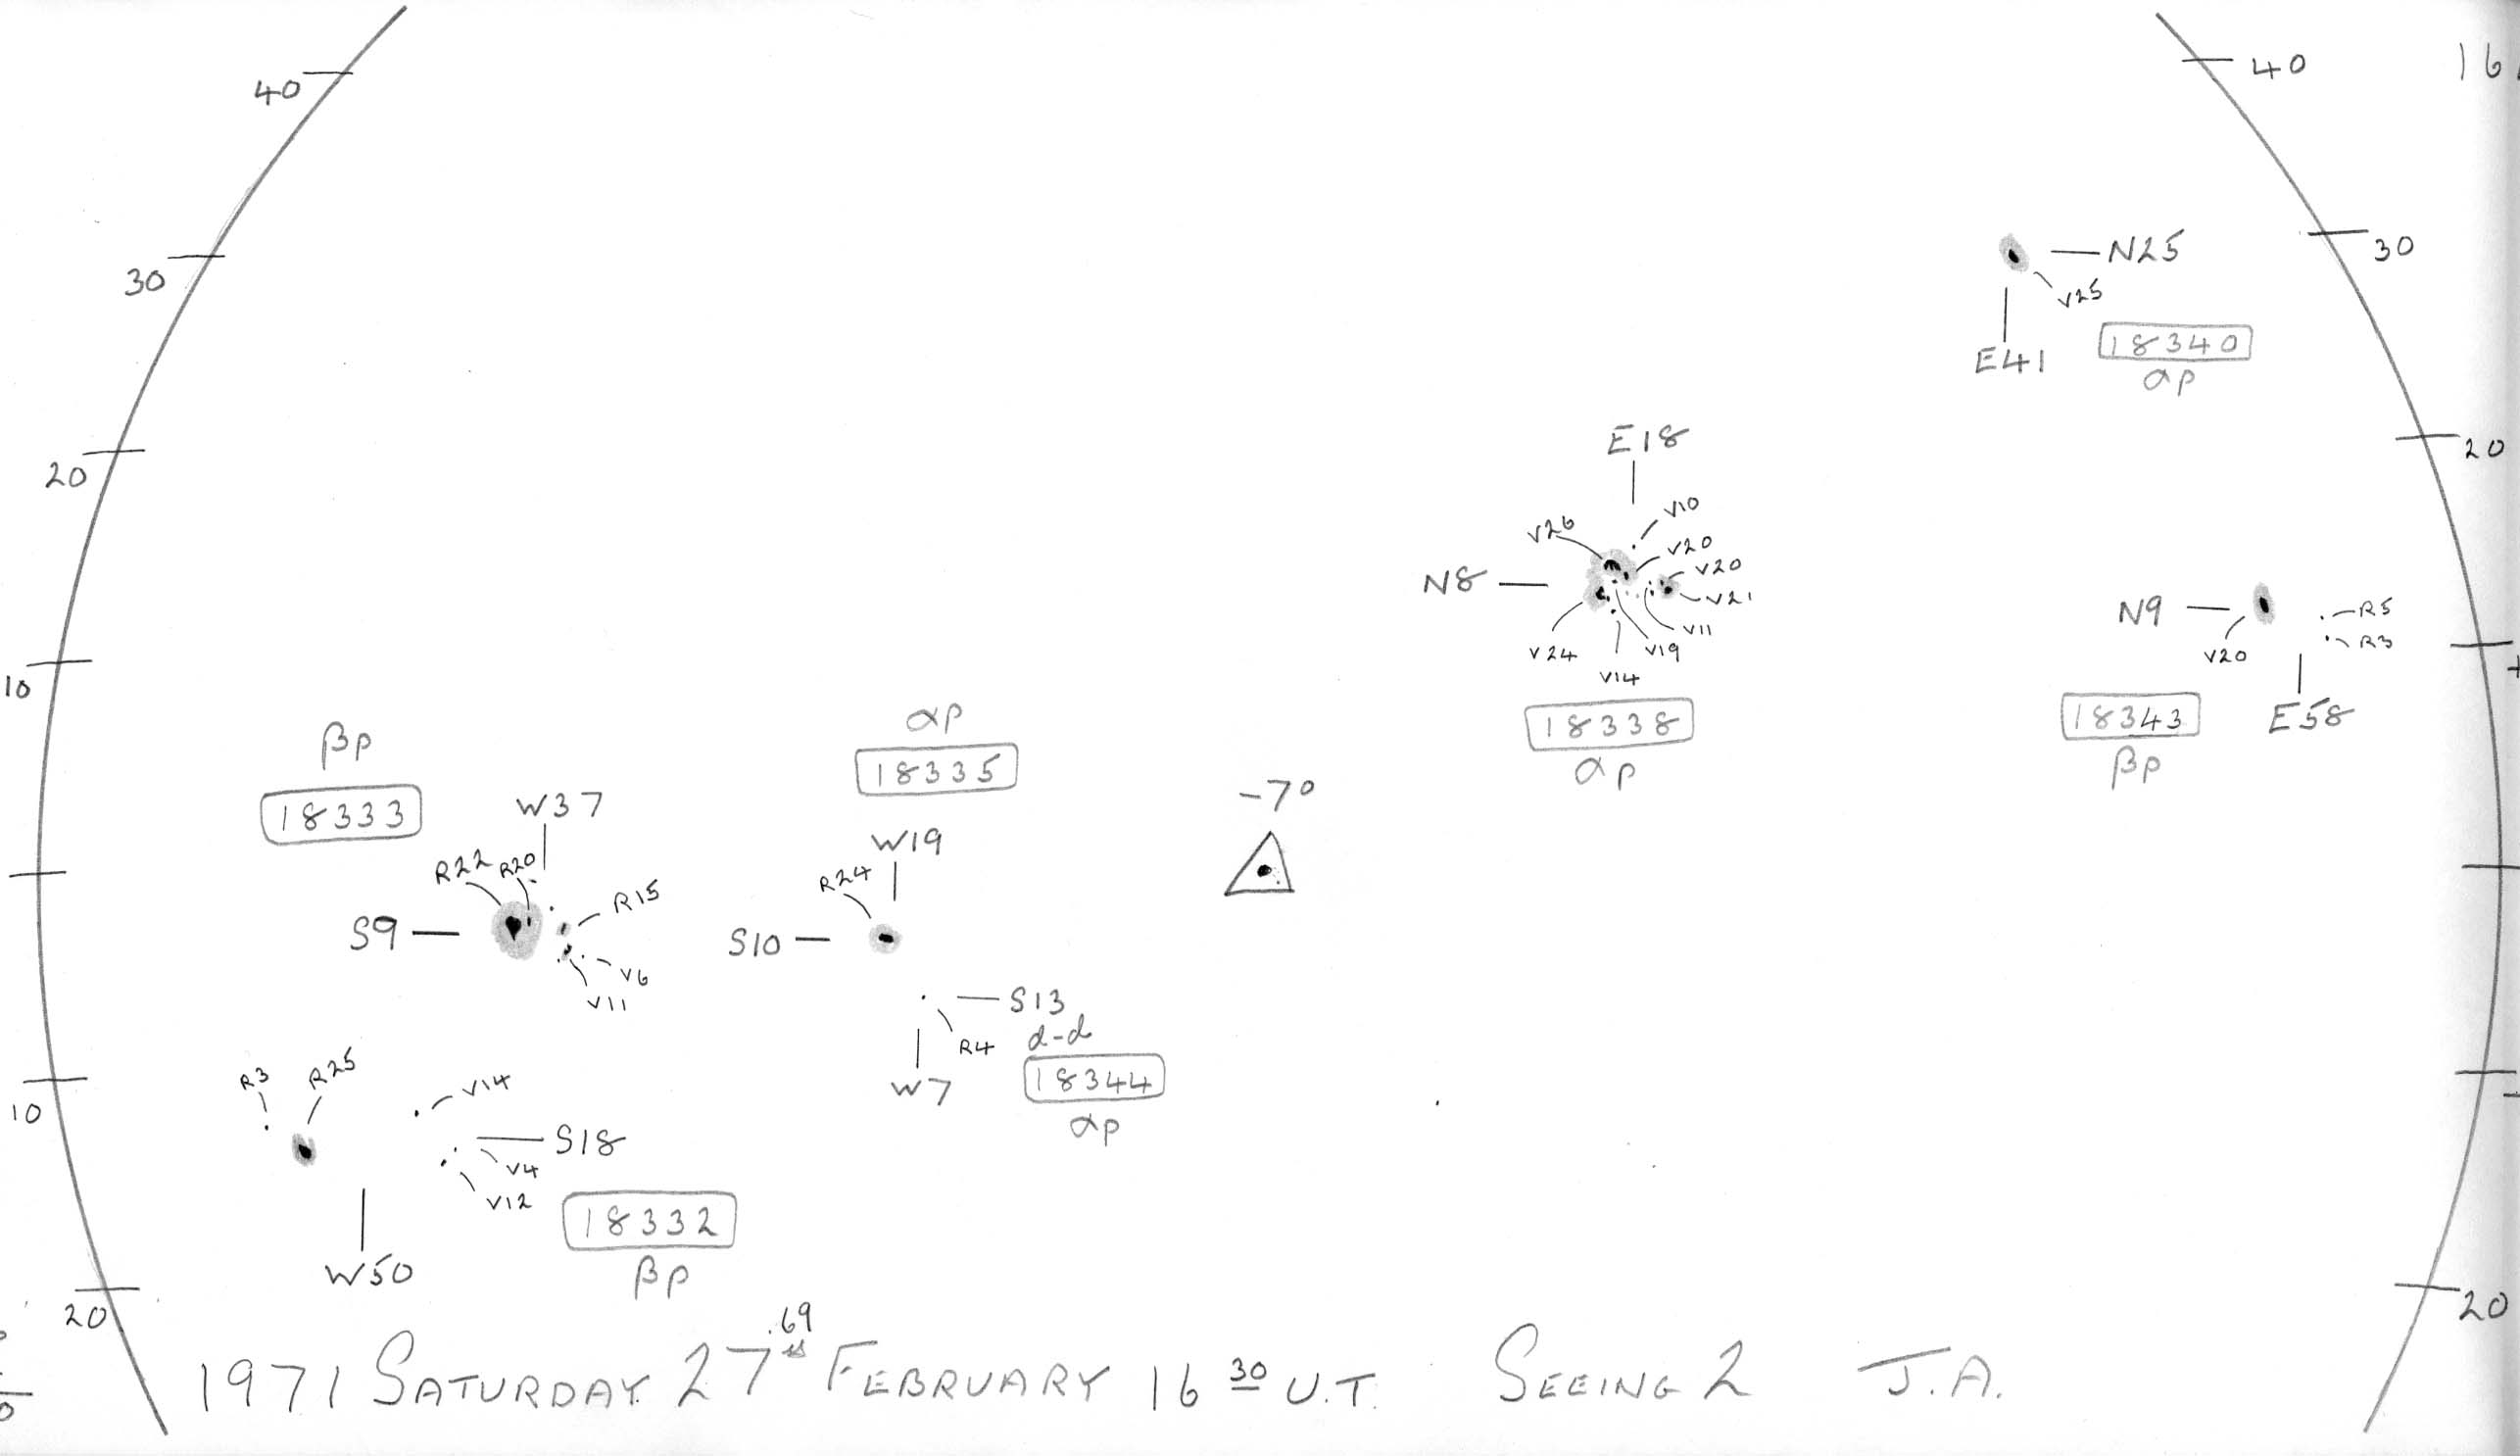 40
40
16
30
N25
V25
30
E41
18340
αp
20
E18
20
V26
V10
V20
V20
N8
V21
V11
V24
V19
V14
N9
R5
R3
V20
10
18338
αp
18343
E58
βp
βp
18333
W37
αp
18335
W19
-7°
R22
R20
R15
R24
S9
S10
V6
V11
S13
d-d
R4
W7
18344
αp
R3
R25
V14
10
S18
V4
V12
W50
18332
βp
20
20
.69
1971 SATURDAY 27 FEBRUARY 16 30 U.T. SEEING 2 J.A.